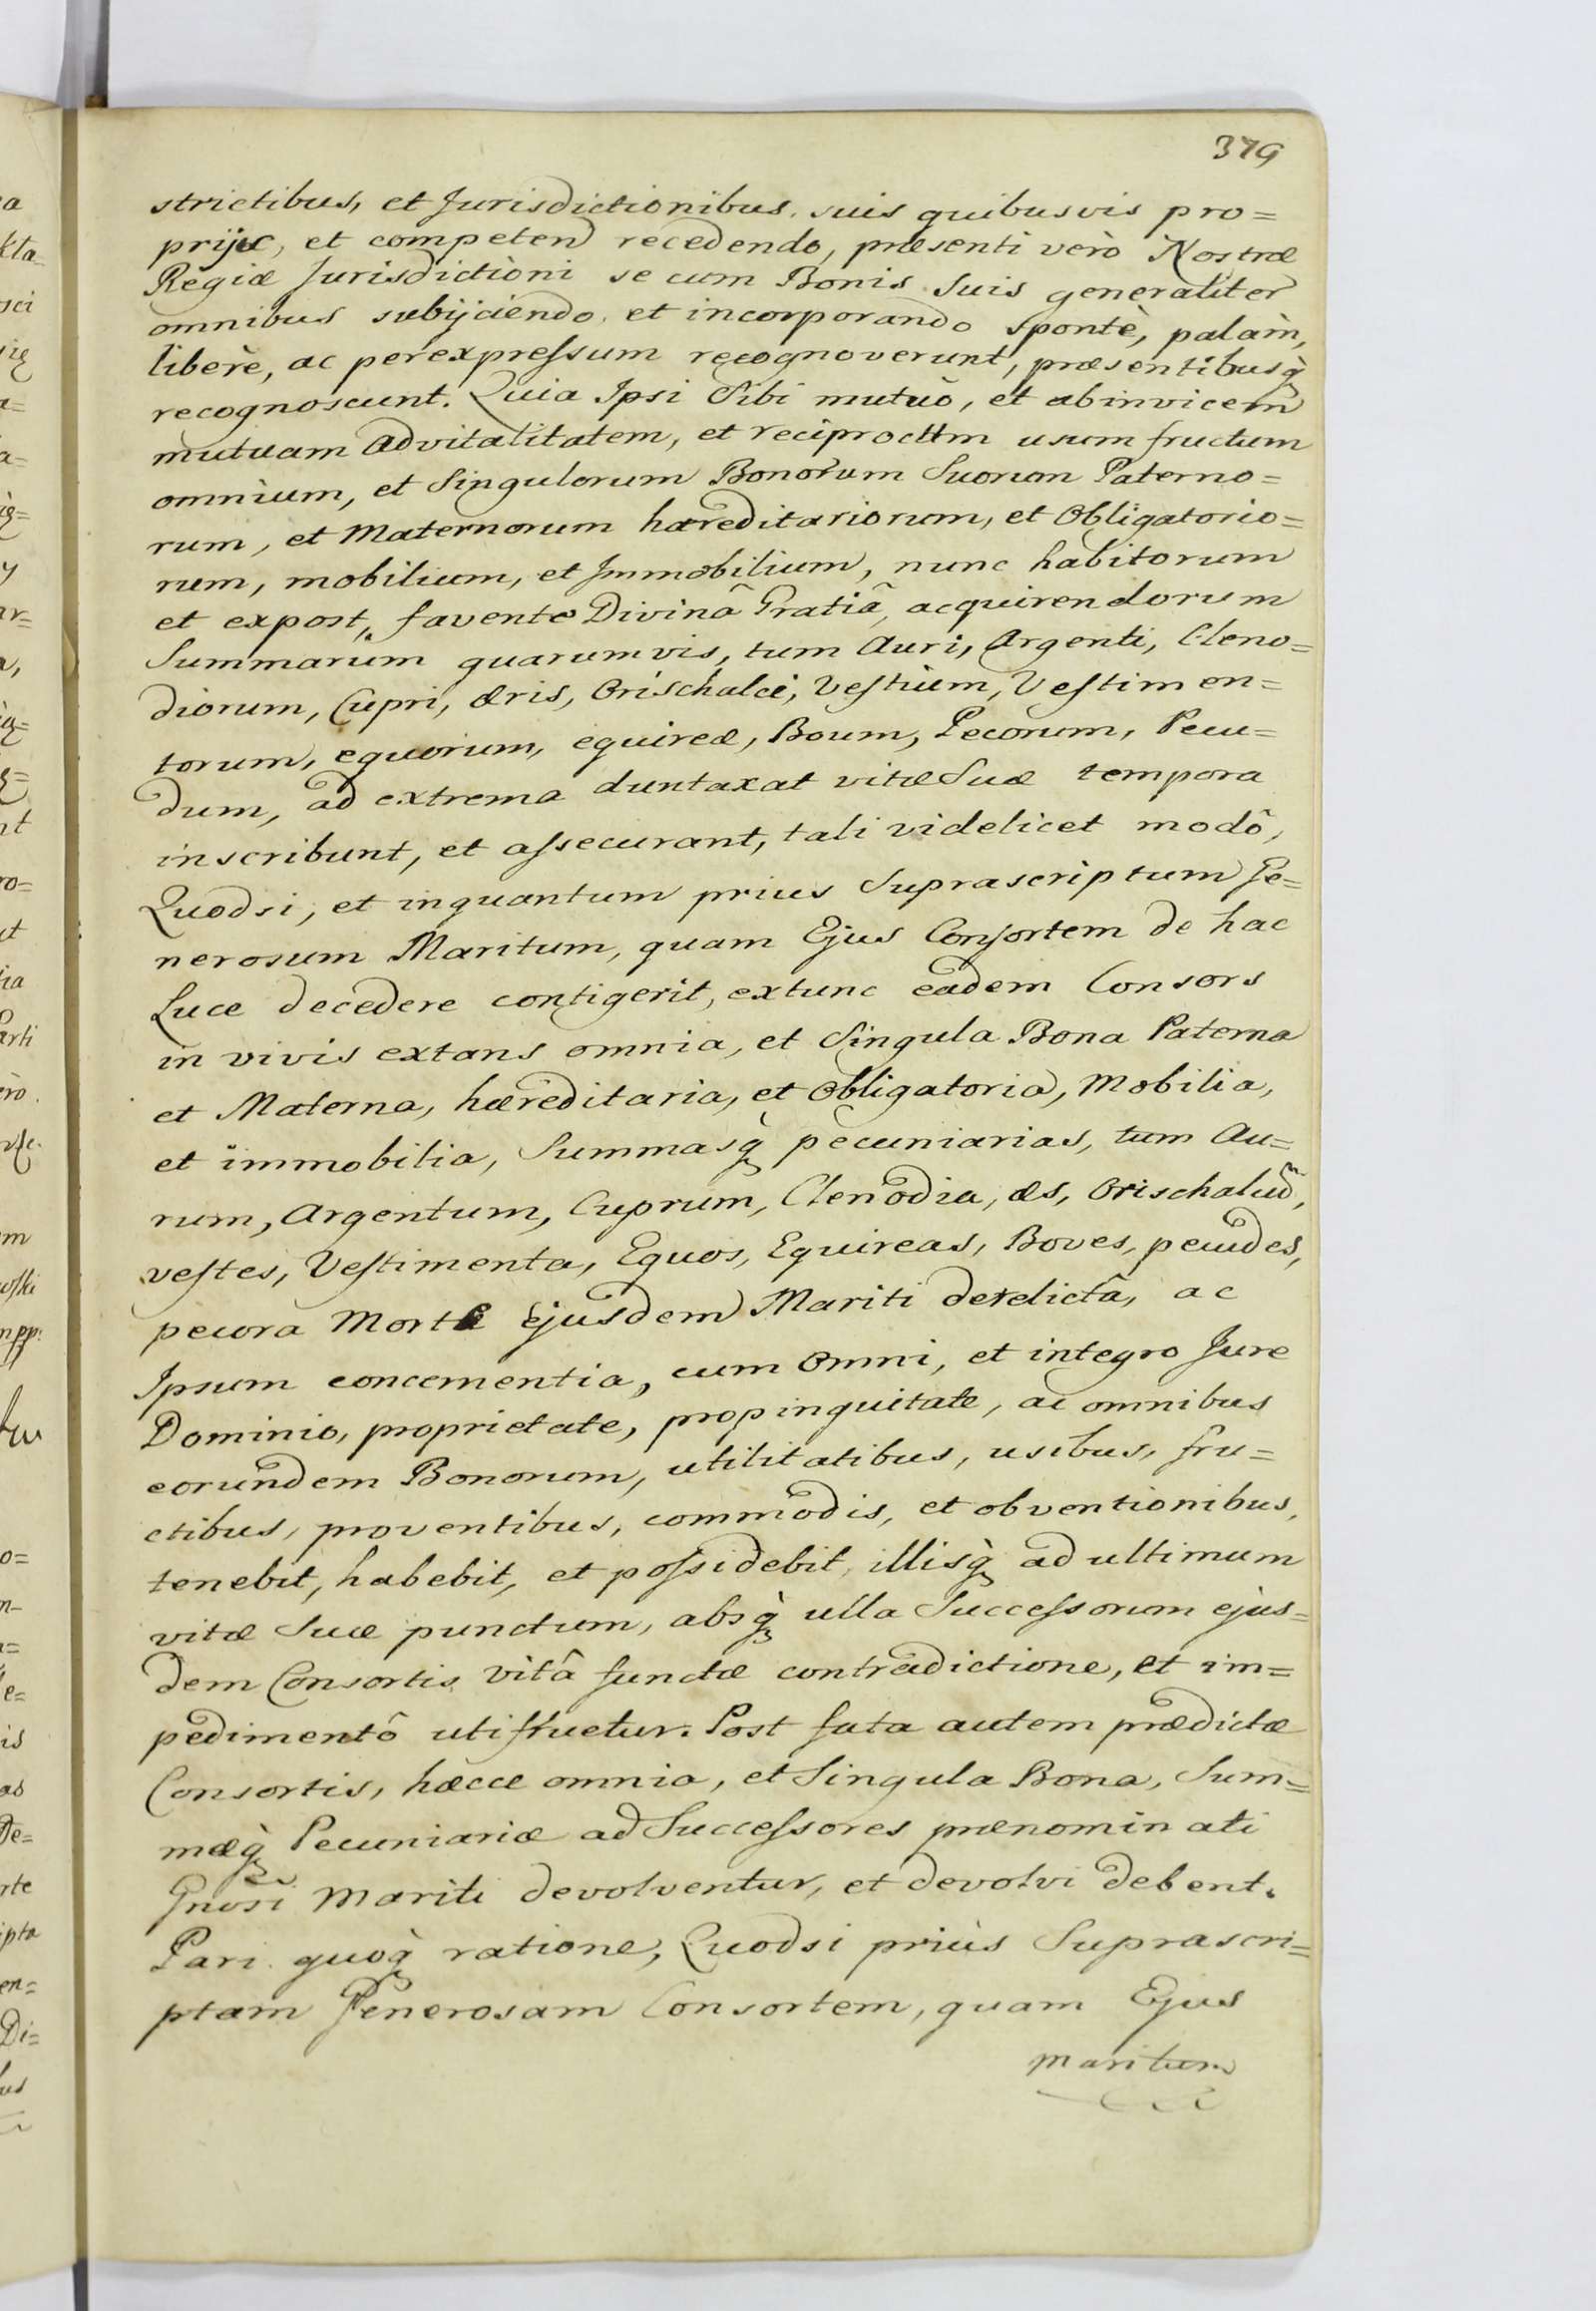 379
strictibus, et Jurisdictionibus suis quibusvis pro=
prijs, et competen recedendo, præsenti verò Nostræ
Regiæ Jurisdictioni se cum Bonis Suis generaliter
omnibus subijciendo et incorporando spontè, palàm,
liberè, ac per expressum recognoverunt, præsentibusq̀
recognoscunt. Quia Ipsi Sibi mutuò, et abinvicem
mutuam Advitalitatem, et reciprocum usum fructum
omnium, et Singulorum Bonorum Suorum Paterno=
rum, et Maternorum hæreditariorum, et Obligatorio=
rum, mobilium, et Immobilium, nunc habitorum
et expost, favente Divinâ Gratiâ, acquirendorum
Summarum quarumvis, tum Auri, Argenti, Cleno=
diorum, Cupri, æris, Orischalci, Vestium, Vestimen=
torum, equorum, equireæ, Boum, Pecorum, Pecu=
dum, ad extrema duntaxat vitæ Suæ tempora
inscribunt, et assecurant, tali videlicet modô,
Quodsi, et inquantum prius Suprascriptum Ge=
nerosum Maritum, quam Ejus Consortem de hac
Luce decedere contigerit, extunc eadem Consors
in vivis extans omnia, et Singula Bona Paterna
et Materna, hæreditaria, et Obligatoria, Mobilia,
et immobilia, Summasq̀ pecuniarias, tum Au=
rum, Argentum, Cuprum, Clenodia, æs, Orischalcũ,
vestes, Vestimenta, Equos, Equireas, Boves, pecudes,
pecora Morte ejusdem Mariti derelicta, ac
Ipsum concernentia, cum Omni, et integro Jure
Dominio, proprietate, propinquitate, ac omnibus
eorundem Bonorum, utilitatibus, usibus, fru=
ctibus, proventibus, commodis, et obventionibus,
tenebit, habebit, et possidebit, illisq̀ ad ultimum
vitæ Suæ punctum, absq̀ ulla Successorum ejus=
dem Consortis vitâ functæ contradictione, et im=
pedimentô utifruetur. Post fata autem prædictæ
Consortis, hæcce omnia, et Singula Bona, Sum=
mæq̀ Pecuniariæ ad Successores prænominati
Gnosi Mariti devolventur, et devolvi debent.
Pari quoq̀ ratione, Quodsi priùs Suprascri=
ptam Generosam Consortem, quam Ejus
maritum